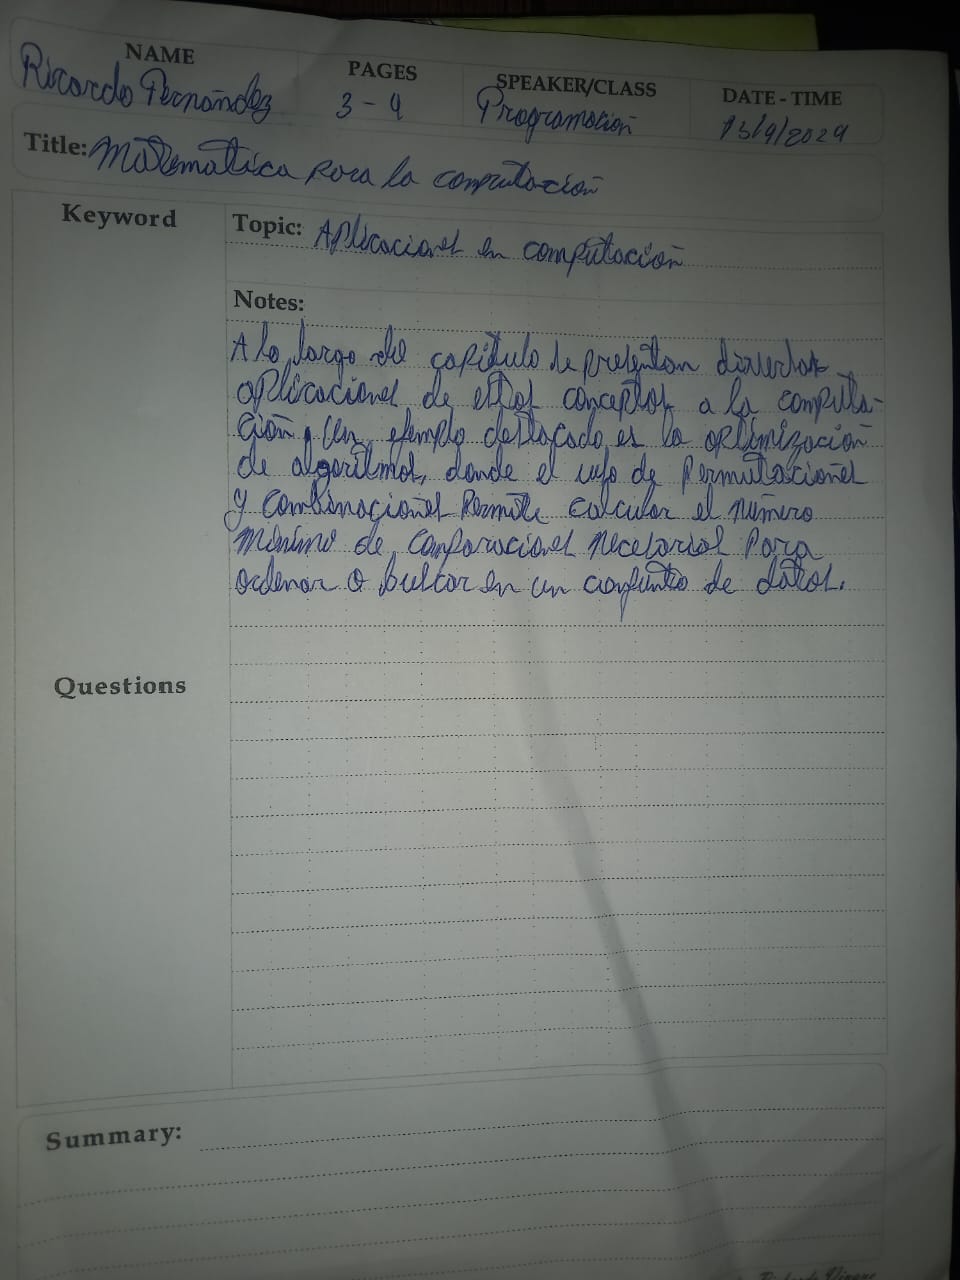 NAME
Ricardo Fernández
PAGES
3 - 4
SPEAKER/CLASS
Programación
DATE - TIME
13/9/2024
Title: Matematica para la computación
Keyword
Topic: Aplicaciones en computación
Notes:
A lo largo del capitulo de presentan diversas
aplicaciones de estos conceptos a la computa-
ción, Un ejemplo destacado es la optimización
de algoritmos, donde el uso de Permutaciones
y combinaciones Permite calcular el número
mínimo de comparaciones necesarias para
ordenar o buscar en un conjunto de datos.
Questions
Summary: